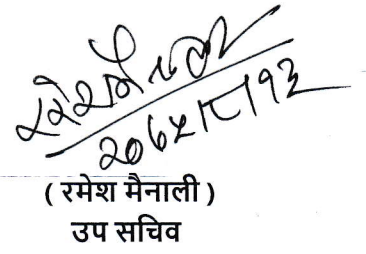 २०७५।८।१३
( रमेश मैनाली )
उप सचिव